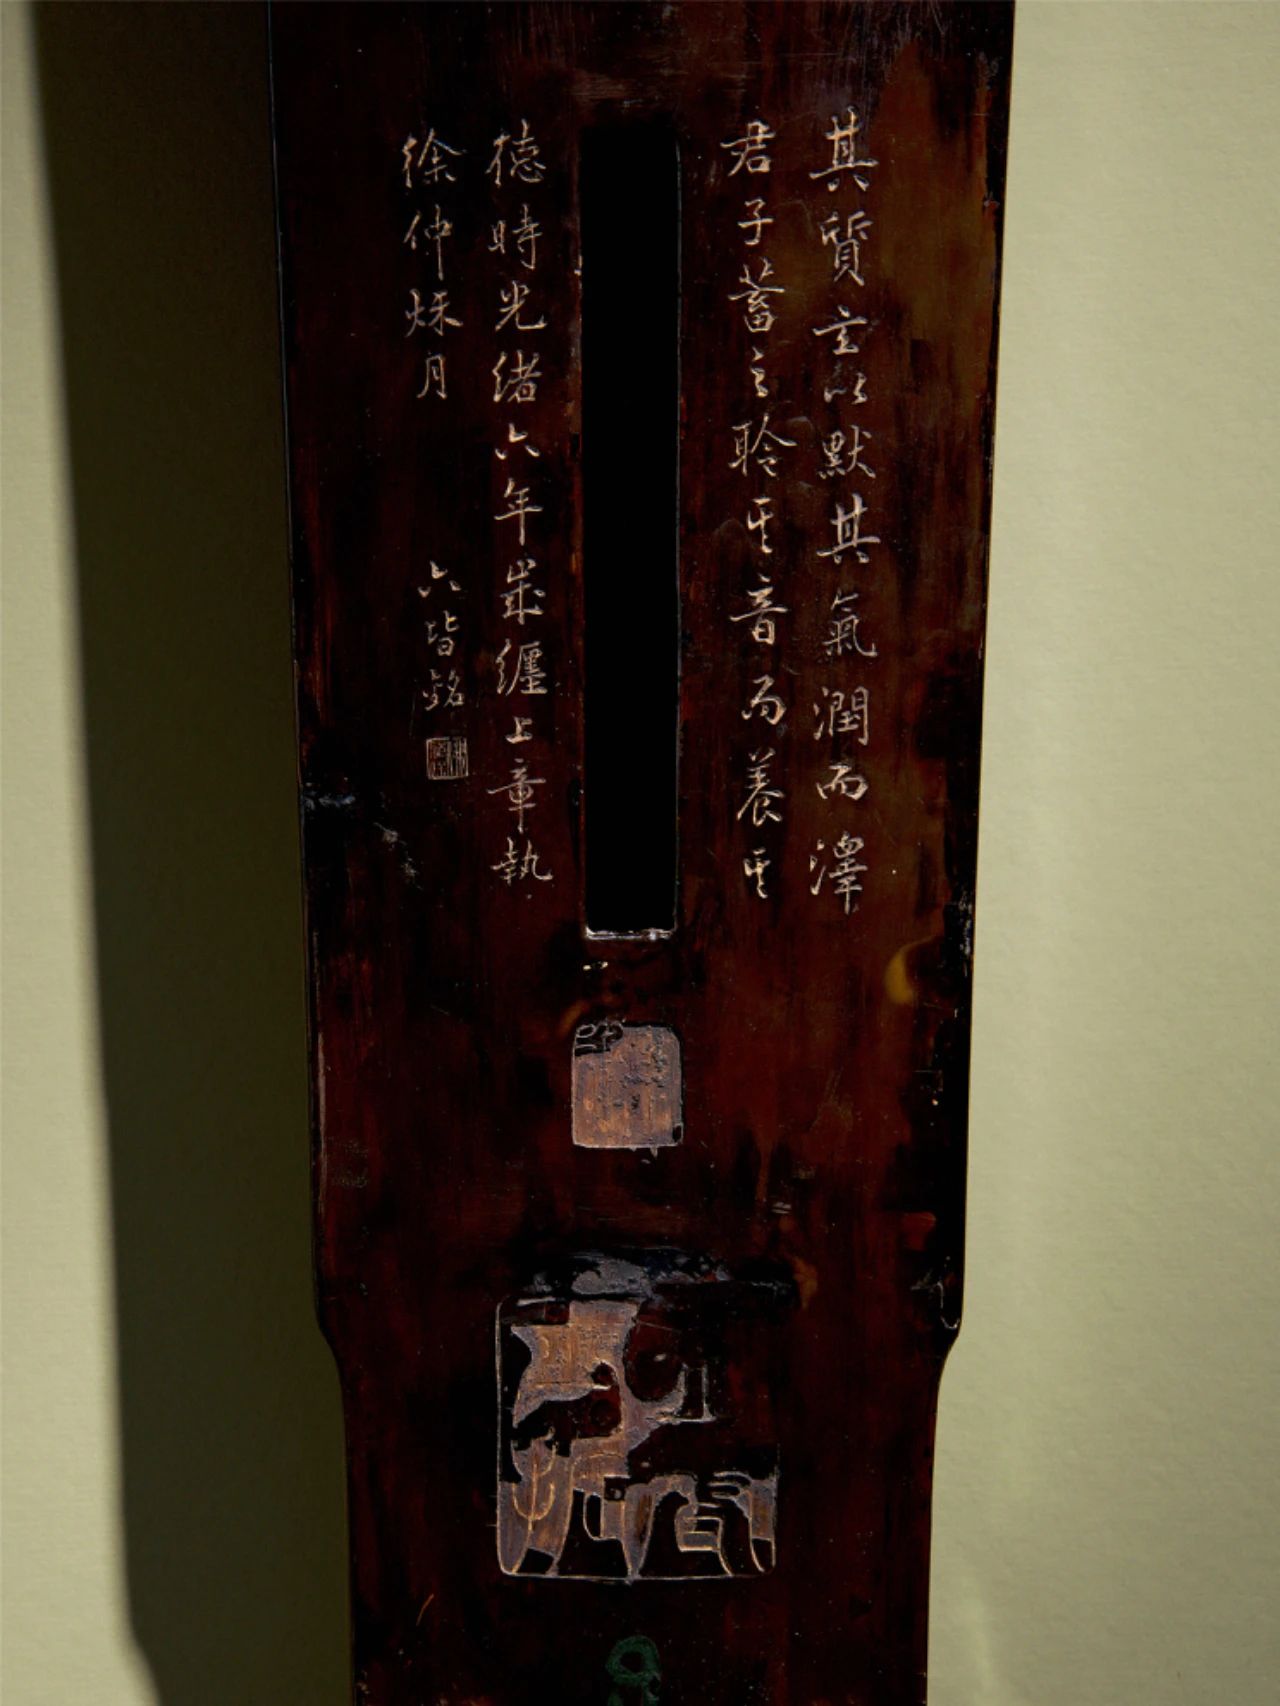 其質玄以默其氣潤而澤
君子蓄之聆其音而養其
德時光緒六年歲纏上章執
徐仲秌月
六皆銘